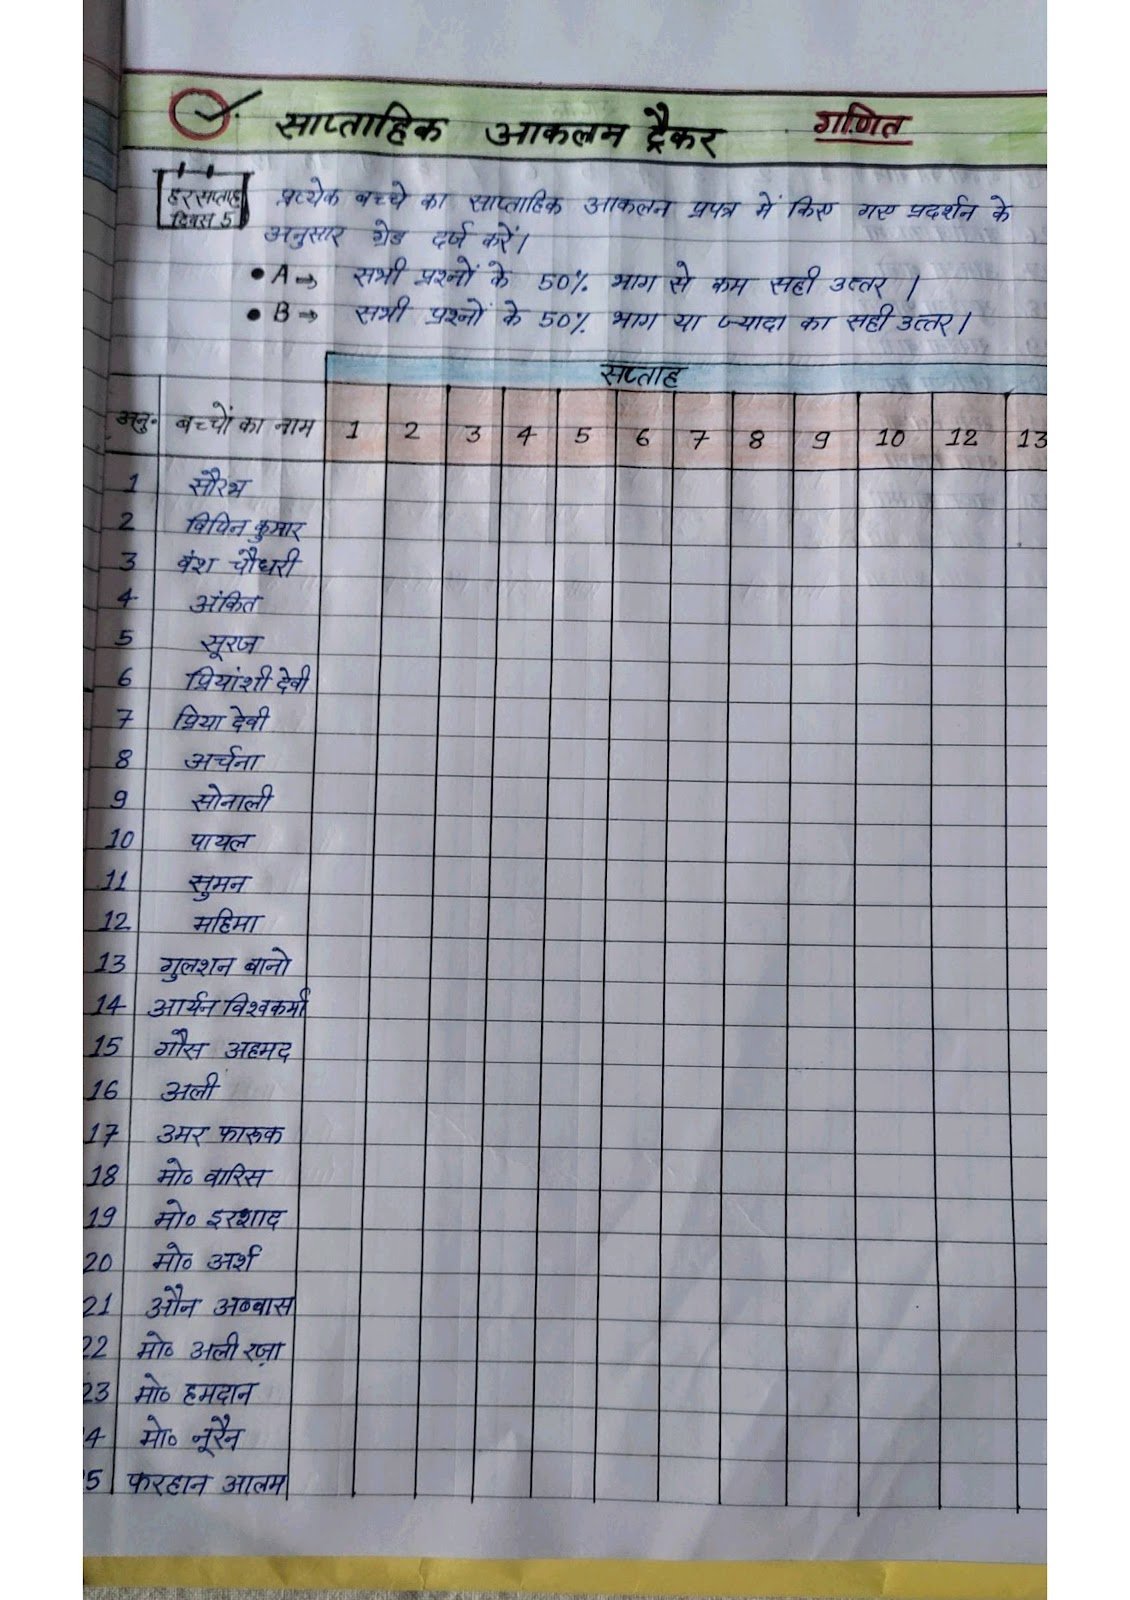 साप्ताहिक आकलन ट्रैकर गणित
हर सप्ताह
दिवस 5
प्रत्येक बच्चे का साप्ताहिक आकलन प्रपत्र में किए गए प्रदर्शन के
अनुसार ग्रेड दर्ज करें।
• A → सभी प्रश्नों के 50% भाग से कम सही उत्तर ।
• B → सभी प्रश्नों के 50% भाग या ज्यादा का सही उत्तर।
सप्ताह
अनु. बच्चों का नाम 1 2 3 4 5 6 7 8 9 10 12 13
1 सौरभ
2 विपिन कुमार
3 वंश चौधरी
4 अंकित
5 सूरज
6 प्रियांशी देवी
7 प्रिया देवी
8 अर्चना
9 सोनाली
10 पायल
11 सुमन
12 महिमा
13 गुलशन बानो
14 आर्यन विश्वकर्मा
15 गौस अहमद
16 अली
17 उमर फारूक
18 मो० वारिस
19 मो० इरशाद
20 मो० अर्श
21 औन अब्बास
22 मो० अली रज़ा
23 मो० हमदान
4 मो० नूरैन
5 फरहान आलम